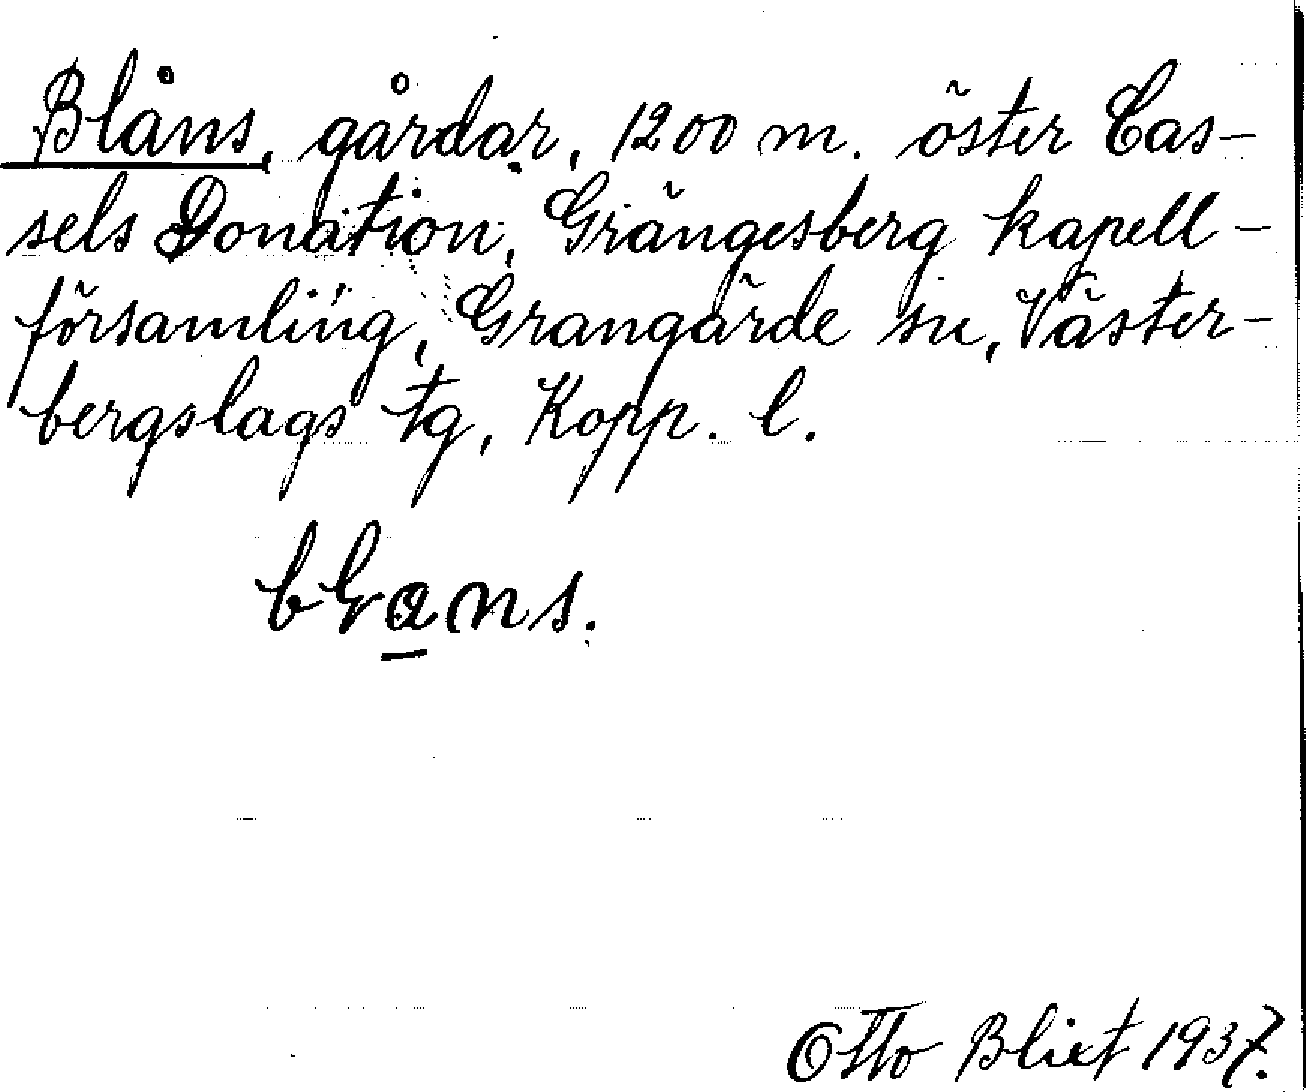 Blåns, gårdar, 1200 m. öster Cas-
sels Donation, Grängesberg kapell-
församling, Grangärde sn, Väster-
bergslags tg, Kopp. l.
bl̵ans.
Otto Blixt 1937.